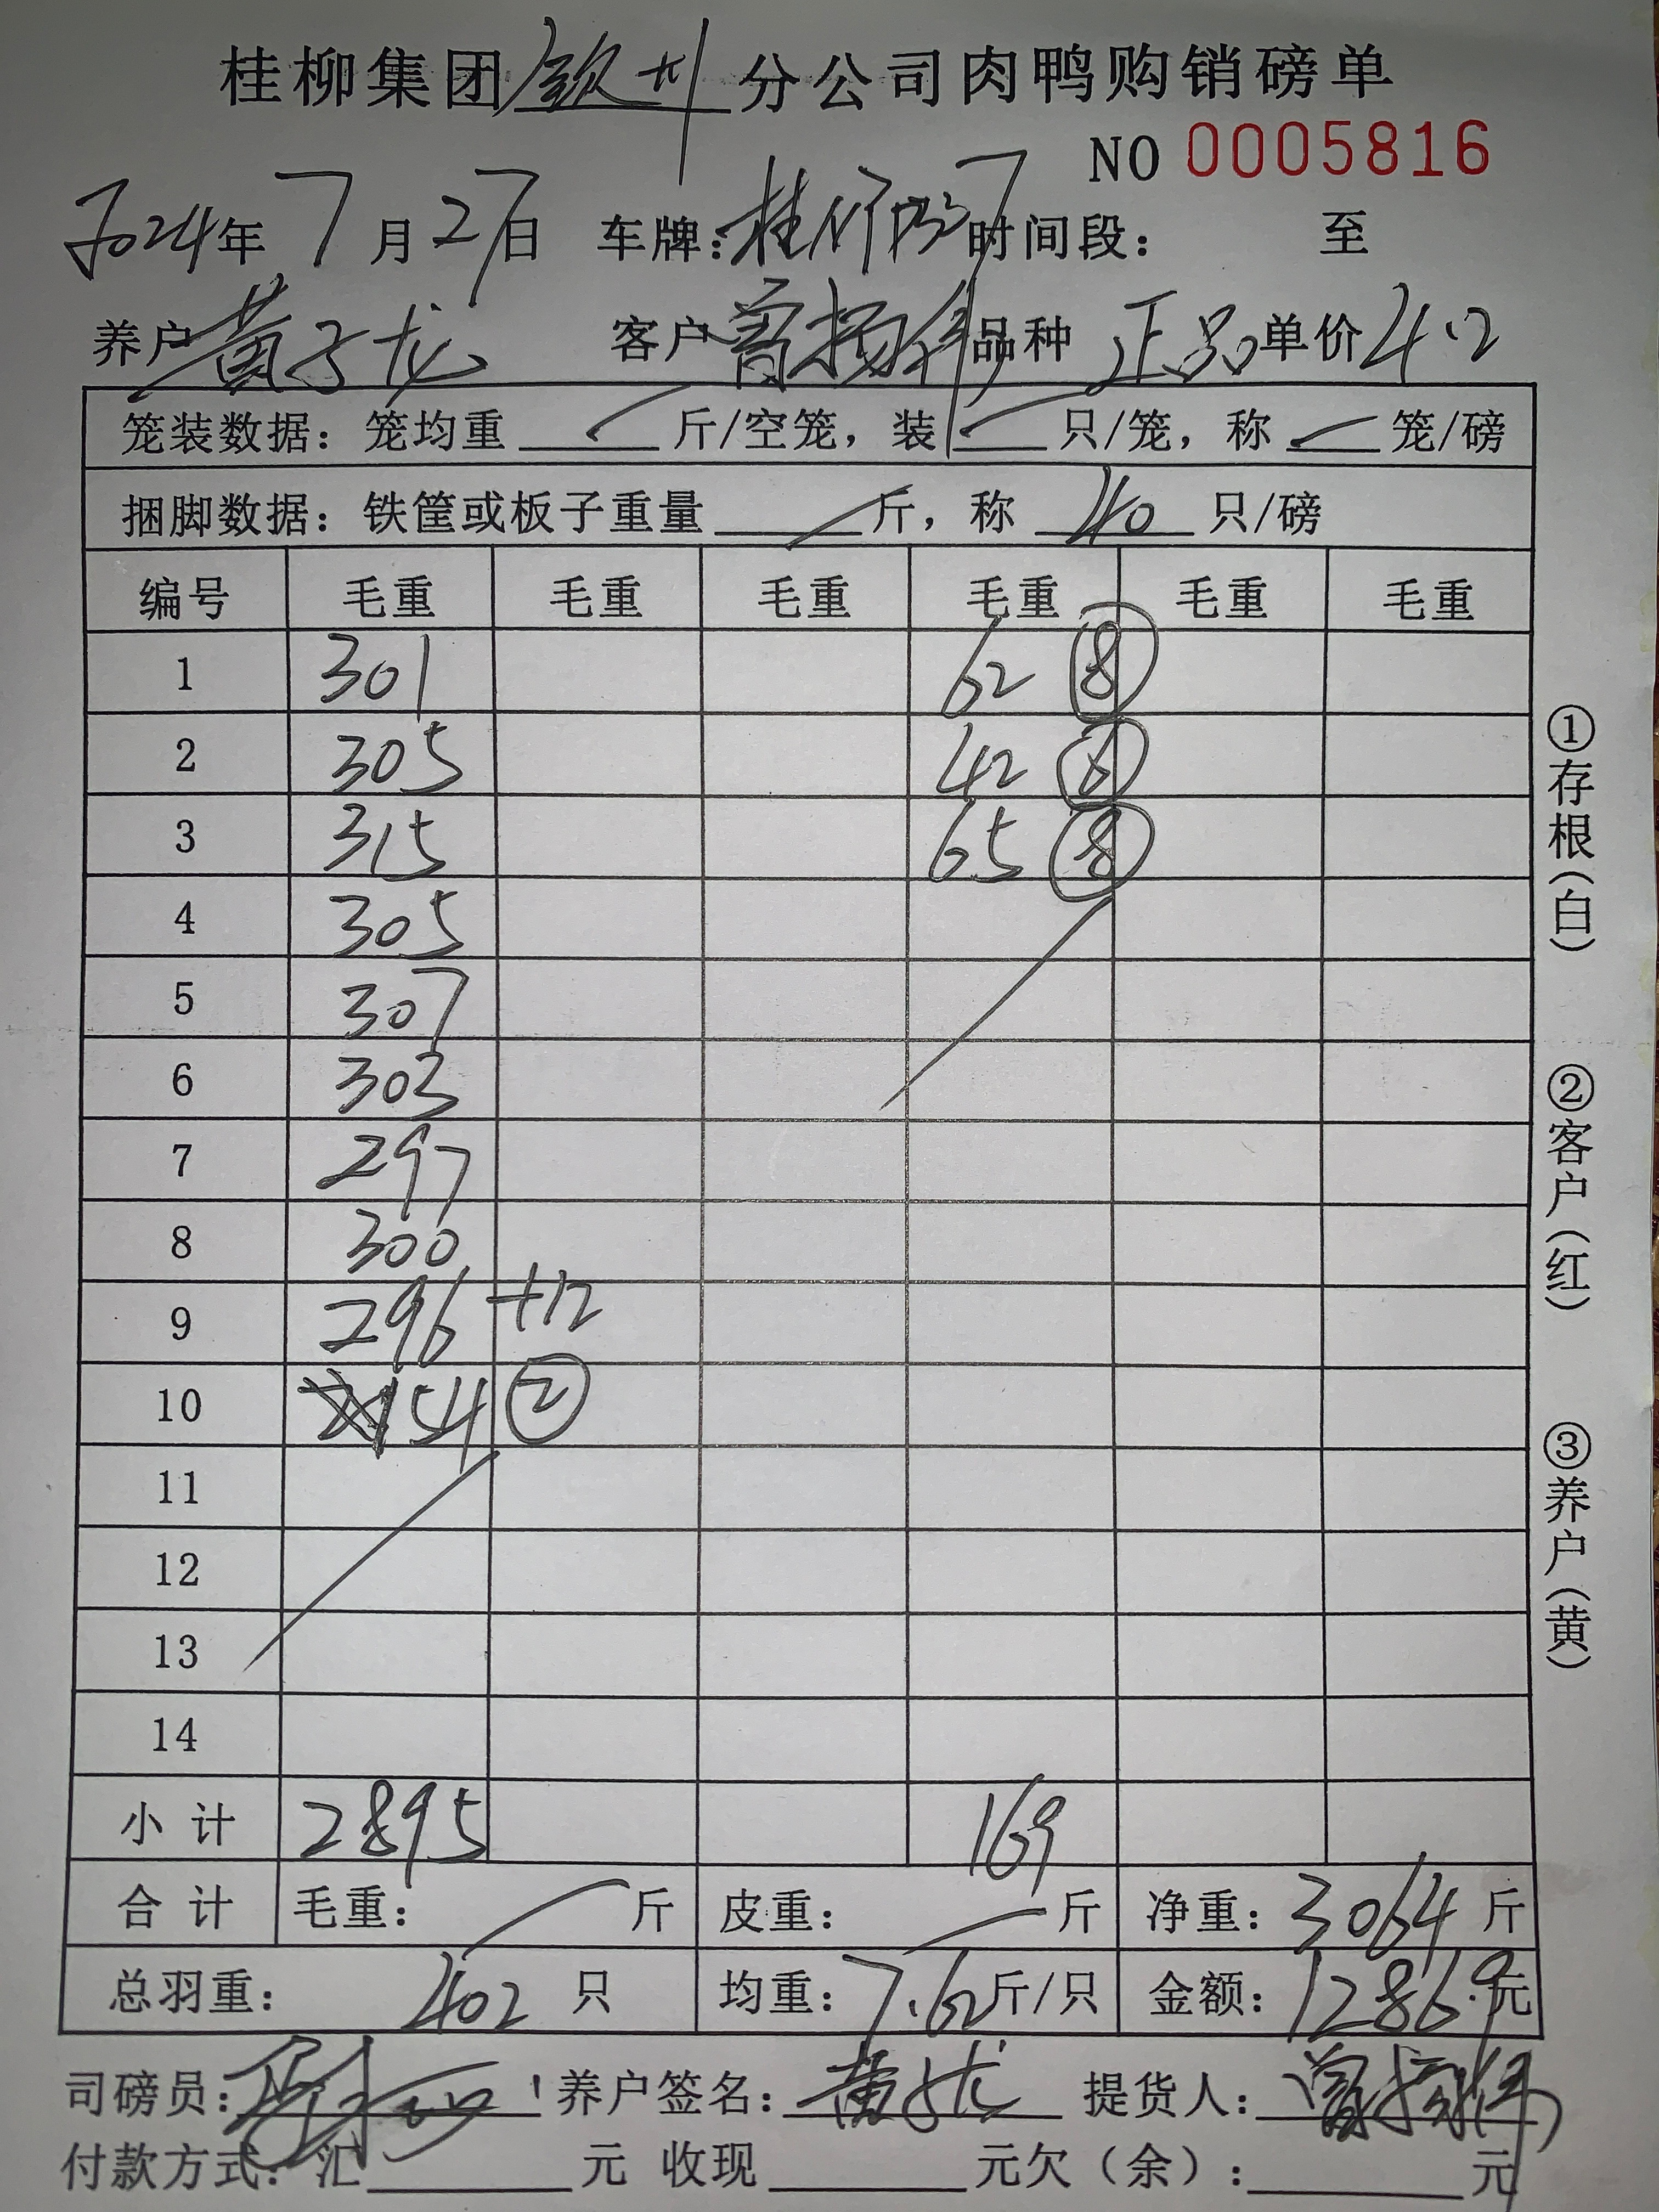 桂柳集团钦州分公司肉鸭购销磅单
NO 0005816
2024年7月27日 车牌:桂 时间段: 至
养户黄子龙 客户曾扬 品种 正品 单价4.2
笼装数据:笼均重 斤/空笼,装 只/笼,称 笼/磅
捆脚数据:铁筐或板子重量 斤,称 40 只/磅
编号 毛重 毛重 毛重 毛重 毛重 毛重
1 301 62 ⑧
2 305 42 ⑥
3 315 65 ⑧
4 305
5 307
6 303
7 297
8 300
9 296 +12
10 154 ②
11
12
13
14
小计 2895 169
合计 毛重: 斤 皮重: 斤 净重:3064 斤
总羽重: 402 只 均重:7.62斤/只 金额:12869元
司磅员: 养户签名:黄子龙 提货人:曾扬
付款方式:汇 元 收现 元欠(余): 元
①存根(白)
②客户(红)
③养户(黄)